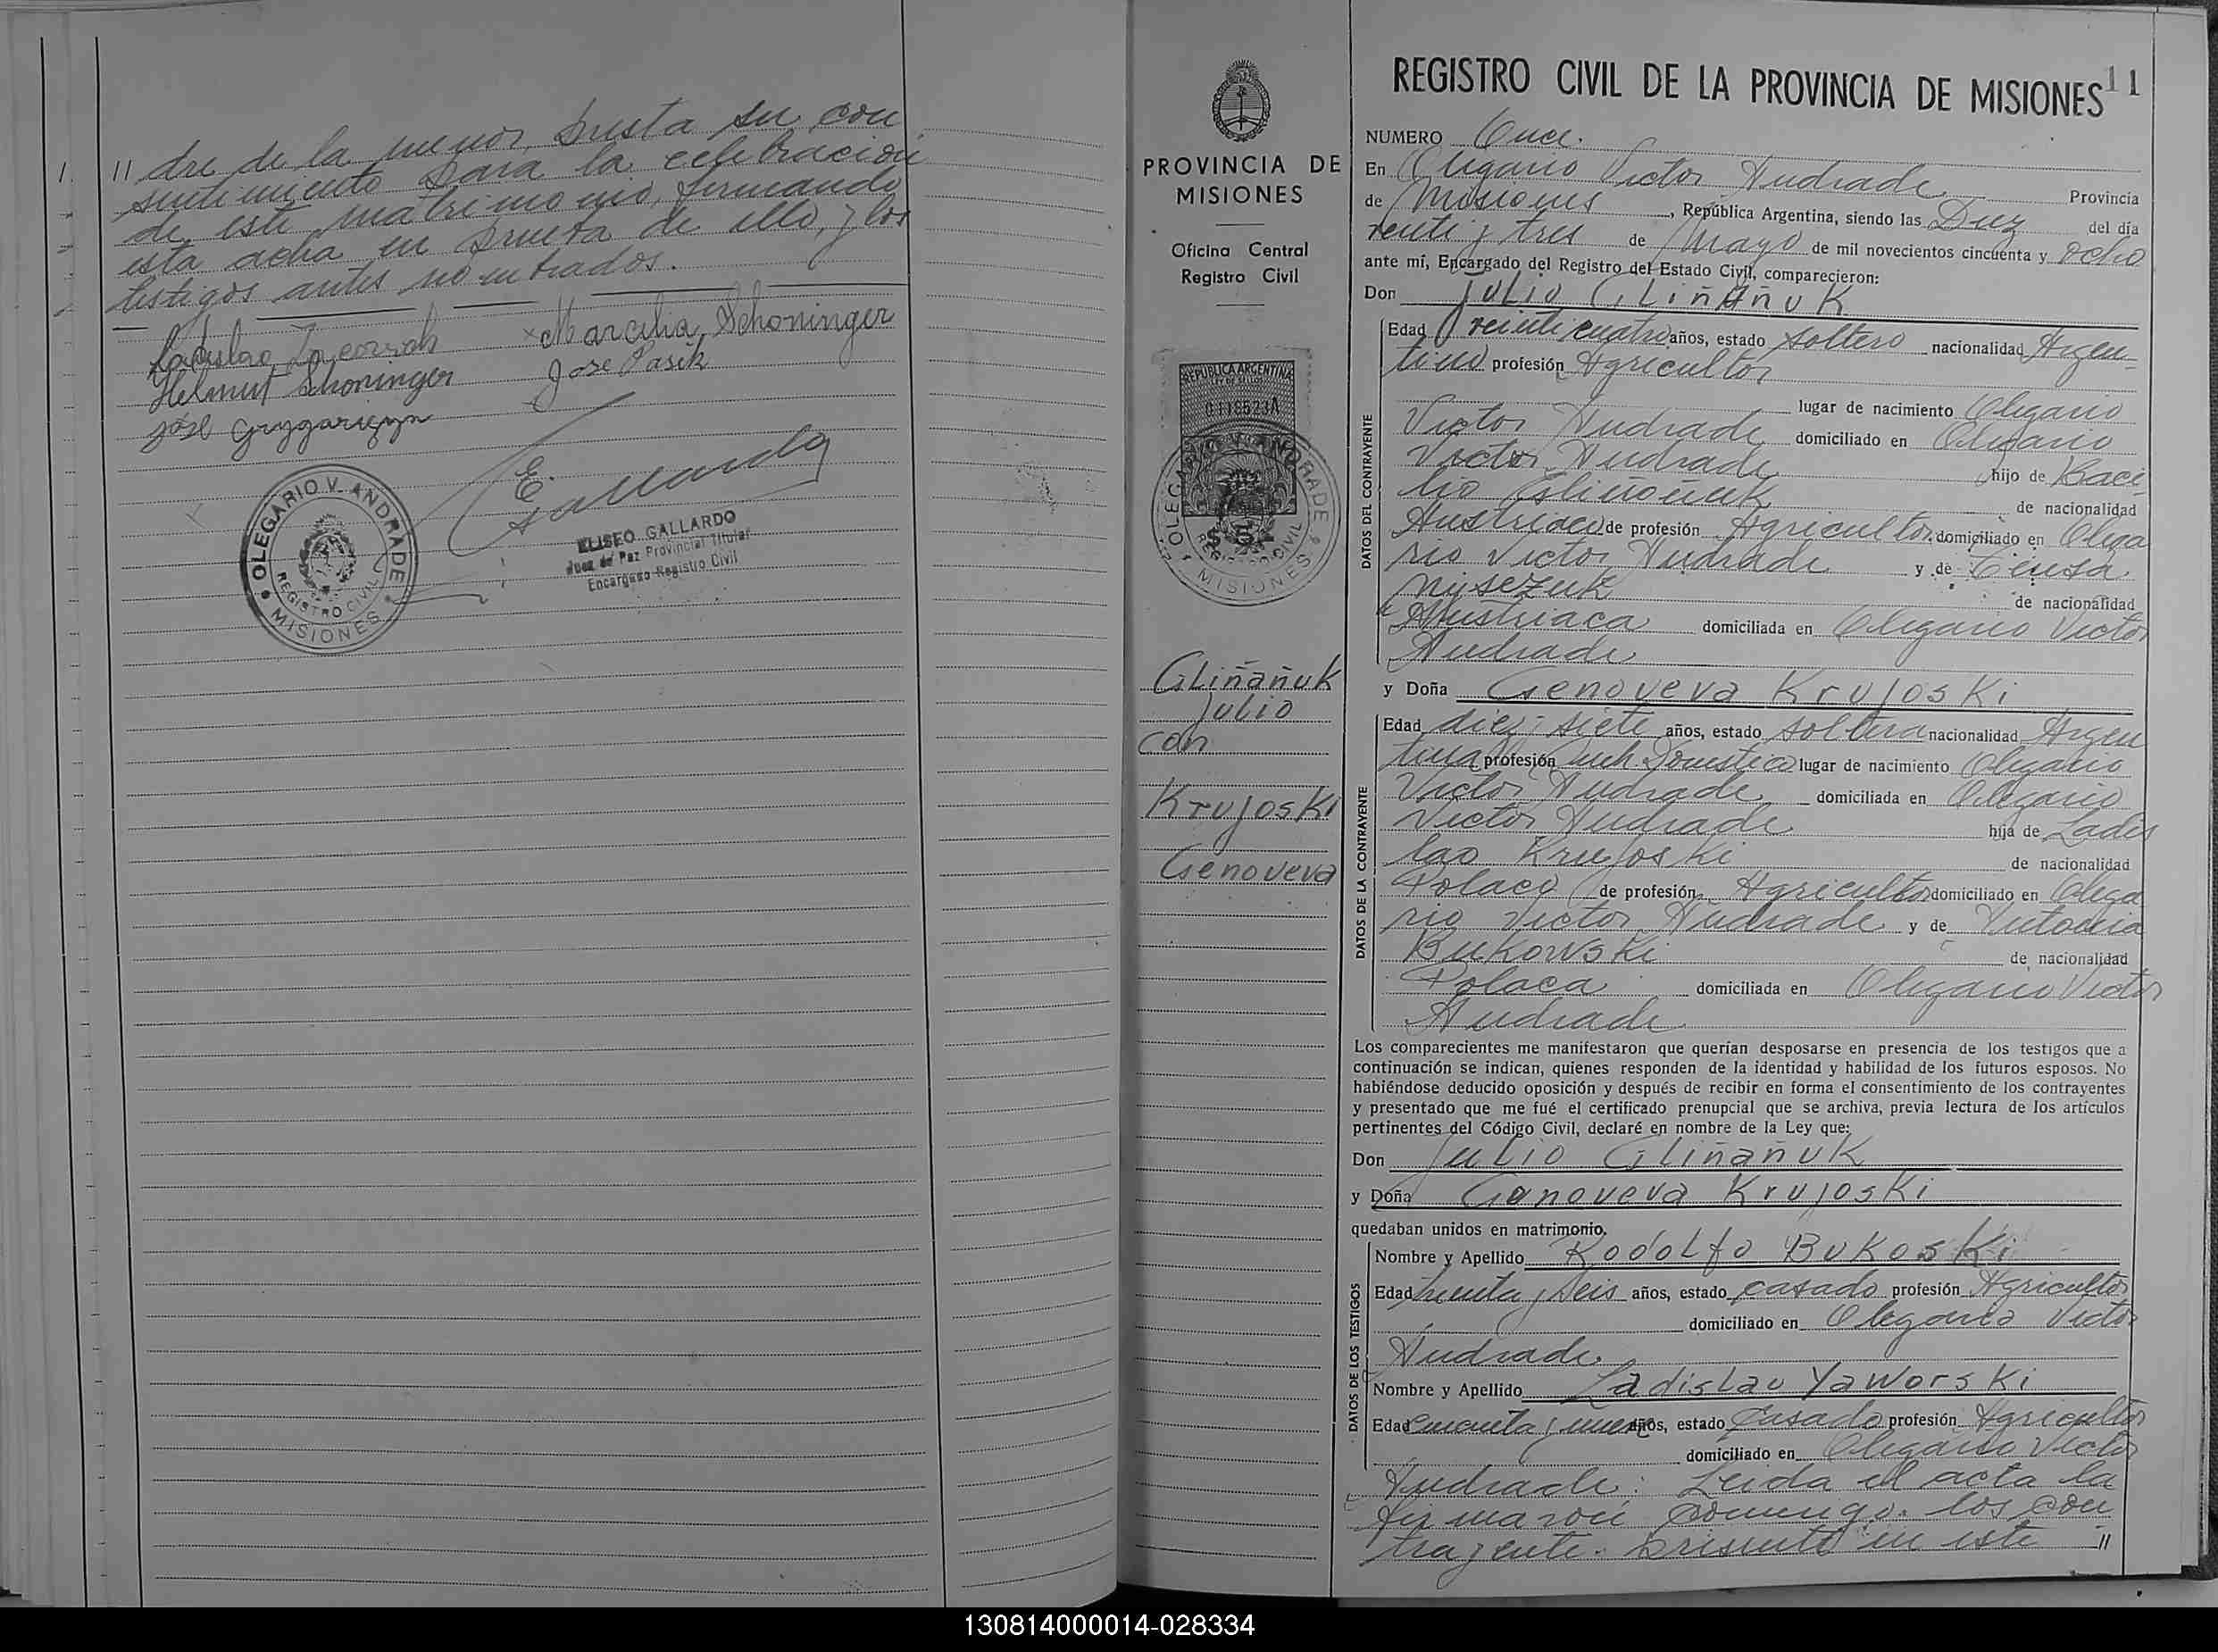 // dre de la menor, presta su con
sentimiento para la celebración
de este matrimonio, firmando
esta acta en prueba de ello, y los
testigos antes nombrados.
Ladislao
Marcelia Schoninger
Helmut Schoninger
Jose Pasik
José Grygariszyn
E. Gallardo
OLEGARIO V. ANDRADE
REGISTRO CIVIL
MISIONES
ELISEO GALLARDO
Juez de Paz Provincial Titular
Encargado Registro Civil
PROVINCIA DE
MISIONES
Oficina Central
Registro Civil
REPUBLICA ARGENTINA
LEY DE SELLOS
0118523A
OLEGARIO V. ANDRADE
REGISTRO CIVIL
MISIONES
Gliñañuk
Julio
con
Krujoski
Genoveva
REGISTRO CIVIL DE LA PROVINCIA DE MISIONES 11
NUMERO Once.
En Olegario Victor Andrade Provincia
de Misiones, República Argentina, siendo las Diez del día
veinte y tres de Mayo de mil novecientos cincuenta y ocho
ante mí, Encargado del Registro del Estado Civil, comparecieron:
Don Julio Gliñañuk
DATOS DEL CONTRAYENTE
Edad veinticuatro años, estado soltero nacionalidad Argen-
tino profesión Agricultor
lugar de nacimiento Olegario
Victor Andrade domiciliado en Olegario
Victor Andrade hijo de Baci-
lio Gliñoñuk de nacionalidad
Austriaco de profesión Agricultor domiciliado en Olega
rio Victor Andrade y de
de nacionalidad
Austriaca domiciliada en Olegario Victor
Andrade
y Doña Genoveva Krujoski
DATOS DE LA CONTRAYENTE
Edad diez i siete años, estado soltera nacionalidad Argen
tina profesión Domestica lugar de nacimiento Olegario
Victor Andrade domiciliada en Olegario
Victor Andrade hija de Ladis
lao Krujoski de nacionalidad
Polaco de profesión Agricultor domiciliado en Olega
rio Victor Andrade y de Victoria
Bukowski de nacionalidad
Polaca domiciliada en Olegario Victor
Andrade
Los comparecientes me manifestaron que querían desposarse en presencia de los testigos que a
continuación se indican, quienes responden de la identidad y habilidad de los futuros esposos. No
habiéndose deducido oposición y después de recibir en forma el consentimiento de los contrayentes
y presentado que me fué el certificado prenupcial que se archiva, previa lectura de los artículos
pertinentes del Código Civil, declaré en nombre de la Ley que:
Don Julio Gliñañuk
y Doña Genoveva Krujoski
quedaban unidos en matrimonio.
DATOS DE LOS TESTIGOS
Nombre y Apellido Rodolfo Bukoski
Edad treinta y seis años, estado casado profesión Agricultor
domiciliado en Olegario Victor
Andrade
Nombre y Apellido Ladislao Yaworski
Edad años, estado Casado profesión Agricultor
domiciliado en Olegario Victor
Andrade: Leida el acta la
firmaron conmigo. los con
trayente. presente en este //
130814000014-028334